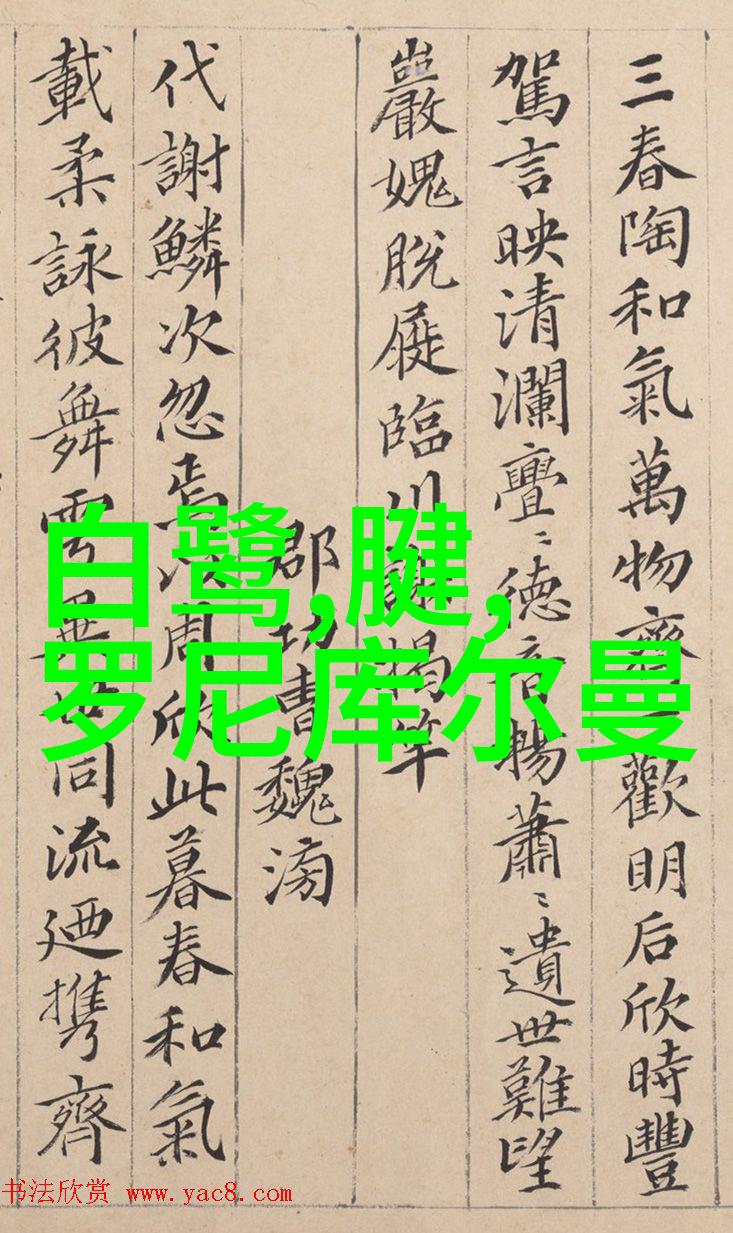 三春陶和氣萬物齊歡明后欣時豐
駕言映清瀾亹〻德音暢蕭〻遺世難望
巖愧脫屣臨川謝揭竿
郡功曹魏滂
代謝鱗次忽焉以周欣此暮春和氣
載柔詠彼舞雩異世同流廼携齊
白鹭,腱,
罗尼库尔曼
书法欣赏 www.yac8.com